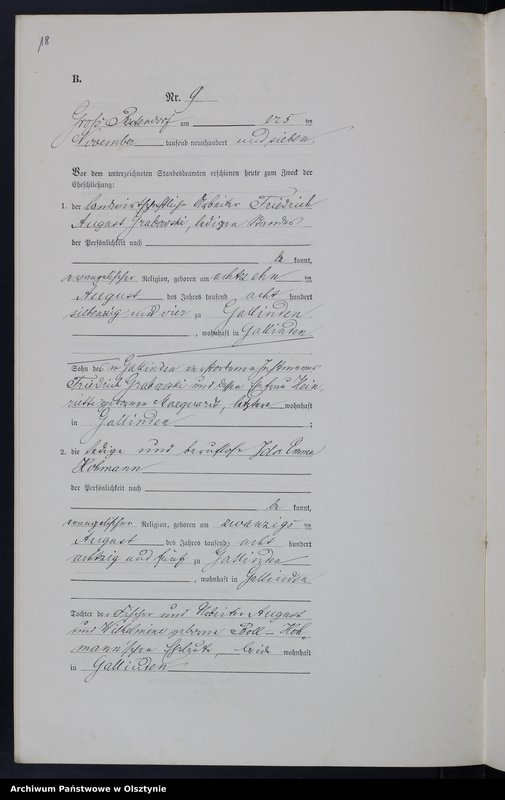 18
B.
Nr. 9
Groß am ers ten
November tausend neunhundert und sieben.
Vor dem unterzeichneten Standesbeamten erschienen heute zum Zweck der
Eheschließung:
1. der landwirthschaftliche Arbeiter Friedrich
August Grabowski, ledigen Standes
der Persönlichkeit nach
be kannt,
evangelischer Religion, geboren am achtzehn ten
August des Jahres tausend acht hundert
siebenzig und vier zu Gallinden
, wohnhaft in Gallinden
Sohn des in Gallinden verstorbenen Instmanns
Friedrich Grabowski und dessen Ehefrau Hein
riette geborene letztere wohnhaft
in Gallinden ;
2. die ledige und berufslose Ida Emma
Hohmann
der Persönlichkeit nach
be kannt,
evangelischer Religion, geboren am zwanzigs ten
August des Jahres tausend acht hundert
achtzig und fünf zu Gallinden
, wohnhaft in Gallinden
Tochter der Fischer und Arbeiter August
und Wilhelmine geborene Boll - Hoh-
mann'schen Eheleute, beide wohnhaft
in Gallinden
Archiwum Państwowe w Olsztynie